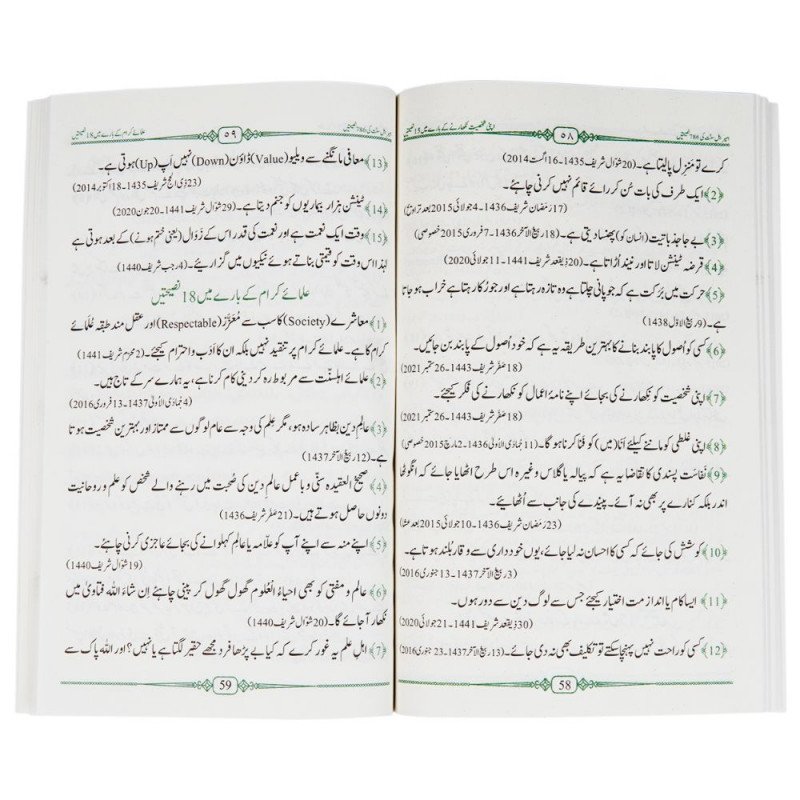 امیر اہل سنت کی 786 نصیحتیں
۵۸
اپنی شخصیت نکھارنے کے بارے میں 15 نصیحتیں
کرے تو منزل پالیتا ہے۔ (20 شوال شریف 1435۔16 اگست 2014)
﴿2﴾ ایک طرف کی بات سُن کر رائے قائم نہیں کرنی چاہئے۔
(17 رمضان شریف 1436۔4 جولائی 2015 بعد تراویح)
﴿3﴾ بے جا جذباتیت (انسان کو) پھنسا دیتی ہے۔ (18 ربیع الآخر 1436۔7 فروری 2015 خصوصی)
﴿4﴾ قرضہ ٹینشن لاتا اور نیند اُڑاتا ہے۔ (20 ذیقعد شریف 1441۔11 جولائی 2020)
﴿5﴾ حرکت میں برکت ہے کہ جو پانی چلتا ہے وہ تازہ رہتا ہے اور جو رُکا رہتا ہے خراب ہو جاتا
ہے۔ (9 ربیع الاول 1438)
﴿6﴾ کسی کو اُصول کا پابند بنانے کا بہترین طریقہ یہ ہے کہ خود اُصول کے پابند بن جائیں۔
(18 صفر شریف 1443۔26 ستمبر 2021)
﴿7﴾ اپنی شخصیت کو نکھارنے کی بجائے اپنے نامۂ اعمال کو نکھارنے کی فکر کیجئے۔
(18 صفر شریف 1443۔26 ستمبر 2021)
﴿8﴾ اپنی غلطی کو ماننے کیلئے اَنا (میں) کو فنا کرنا ہوگا۔ (11 جُمادَی الاُولیٰ 1436۔2 مارچ 2015 خصوصی)
﴿9﴾ نفاست پسندی کا تقاضا یہ ہے کہ پیالہ یا گلاس وغیرہ اس طرح اٹھایا جائے کہ انگوٹھا
اندر بلکہ کنارے پر بھی نہ آئے۔ پیندے کی جانب سے اُٹھائیے۔
(23 رمضان شریف 1436۔10 جولائی 2015 بعد عشا)
﴿10﴾ کوشش کی جائے کہ کسی کا احسان نہ لیا جائے، یوں خود داری سے وقار بلند ہوتا ہے۔
(3 ربیع الآخر 1437۔13 جنوری 2016)
﴿11﴾ ایسا کام یا انداز مت اختیار کیجئے جس سے لوگ دین سے دور ہوں۔
(30 ذیقعد شریف 1441۔21 جولائی 2020)
﴿12﴾ کسی کو راحت نہیں پہنچا سکتے تو تکلیف بھی نہ دی جائے۔ (13 ربیع الآخر 1437۔23 جنوری 2016)
58
امیر اہل سنت کی 786 نصیحتیں
۵۹
علمائے کرام کے بارے میں 18 نصیحتیں
﴿13﴾ معافی مانگنے سے ویلیو (Value) ڈاؤن (Down) نہیں اَپ (Up) ہوتی ہے۔
(23 ذی الحج شریف 1435۔18 اکتوبر 2014)
﴿14﴾ ٹینشن ہزار بیماریوں کو جنم دیتا ہے۔ (29 شوال شریف 1441۔20 جون 2020)
﴿15﴾ وقت ایک نعمت ہے اور نعمت کی قدر اس کے زَوال (یعنی ختم ہونے) کے بعد ہوتی ہے
لہٰذا اس وقت کو قیمتی بناتے ہوئے نیکیوں میں گزاریئے۔ (4 رجب شریف 1440)
علمائے کرام کے بارے میں 18 نصیحتیں
﴿1﴾ معاشرے (Society) کا سب سے مُعَزَّز (Respectable) اور عقل مند طبقہ عُلمائے
کرام کا ہے۔ علمائے کرام پر تنقید نہیں بلکہ ان کا ادَب و احترام کیجئے۔ (2 محرم شریف 1441)
﴿2﴾ علمائے اہلسنّت سے مربوط رہ کر دینی کام کرنا ہے، یہ ہمارے سر کے تاج ہیں۔
(4 جُمادَی الاُولیٰ 1437۔13 فروری 2016)
﴿3﴾ عالِمِ دین بظاہر سادہ ہو، مگر علم کی وجہ سے عام لوگوں سے ممتاز اور بہترین شخصیت ہوتا
ہے۔ (12 ربیع الآخر 1437)
﴿4﴾ صحیحُ العقیدہ سنّی و باعمل عالمِ دین کی صُحبت میں رہنے والے شخص کو علم و روحانیت
دونوں حاصل ہوتے ہیں۔ (21 صفر شریف 1436)
﴿5﴾ اپنے منہ سے اپنے آپ کو علّامہ یا عالِم کہلوانے کی بجائے عاجزی کرنی چاہئے۔
(19 شوال شریف 1440)
﴿6﴾ عالم و مفتی کو بھی احیاءُ العُلوم گھول گھول کر پینی چاہئے اِن شاءَ اللہ فتاویٰ میں
نکھار آجائے گا۔ (20 شوال شریف 1440)
﴿7﴾ اہلِ علم یہ غور کرے کہ کیا بے پڑھا فرد مجھے حقیر لگتا ہے یا نہیں؟ اور اللہ پاک سے
59